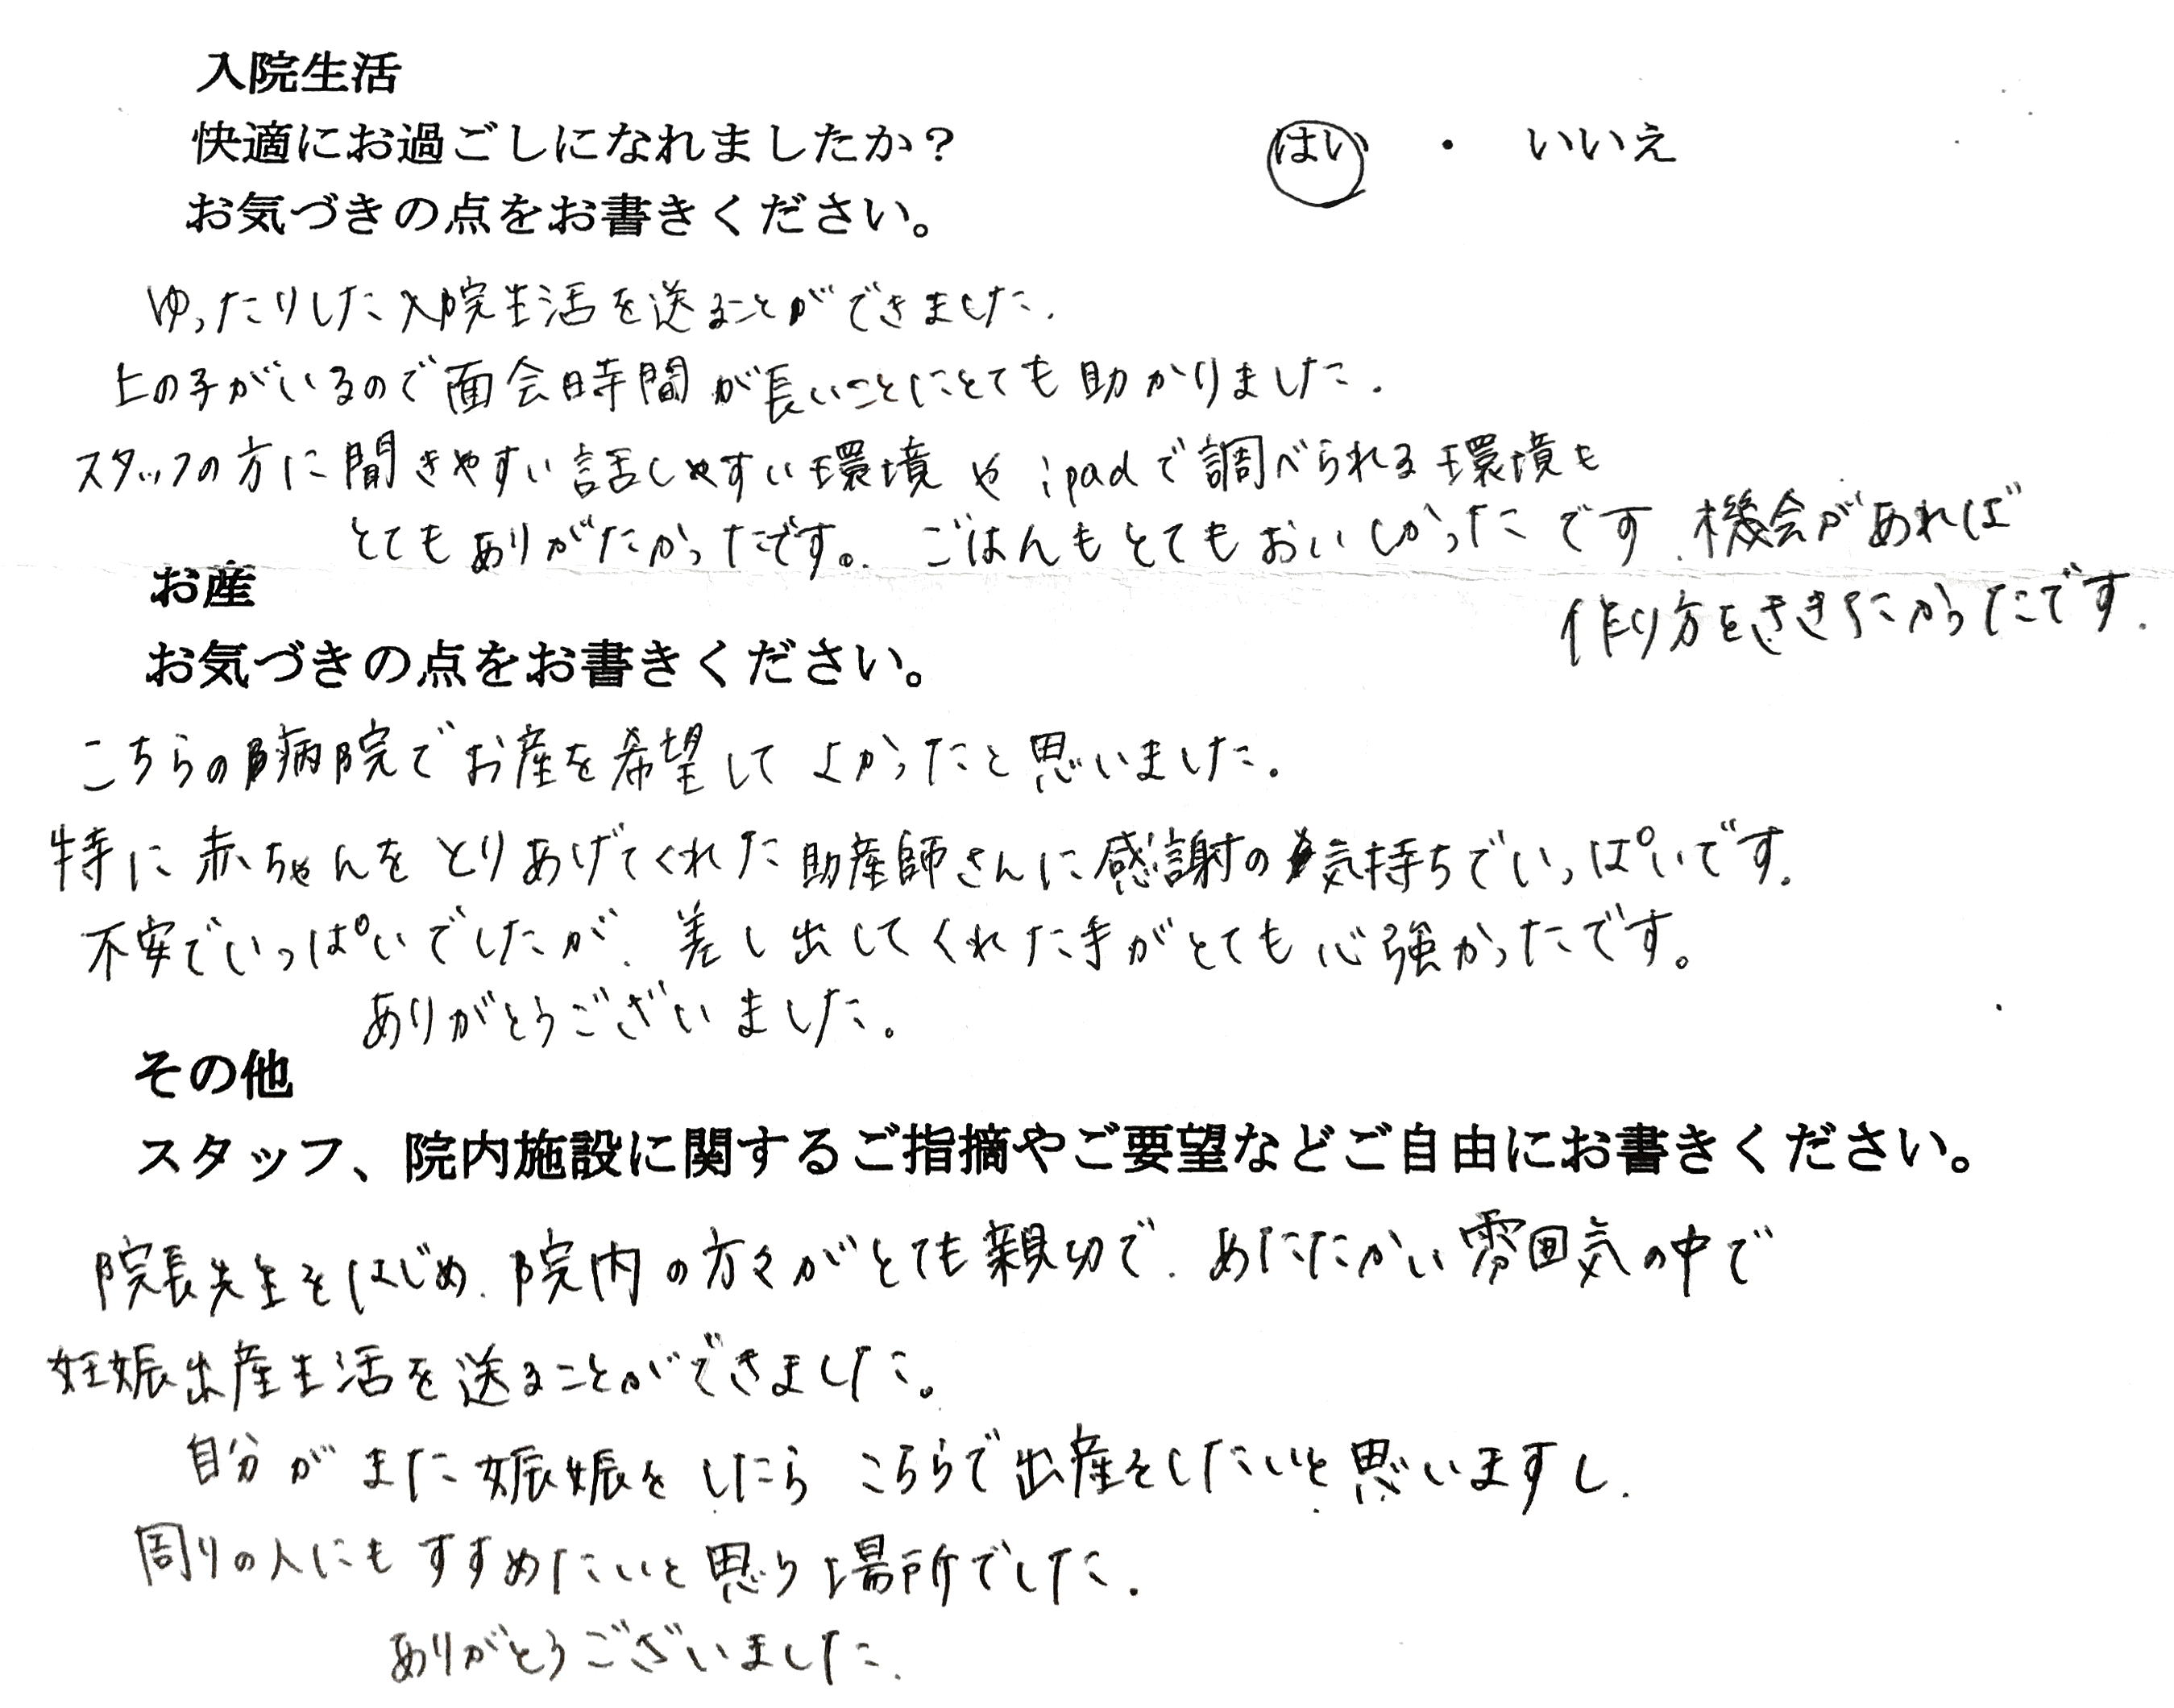 入院生活
快適にお過ごしになれましたか？　はい ・ いいえ
お気づきの点をお書きください。
ゆったりした入院生活を送ることができました.
上の子がいるので面会時間が長いことにとても助かりました.
スタッフの方に聞きやすい話しやすい環境や ipadで調べられる環境も
とてもありがたかったです。. ごはんもとてもおいしかったです. 機会があれば
作り方をききたかったです.
お産
お気づきの点をお書きください。
こちらの病院でお産を希望してよかったと思いました.
特に赤ちゃんをとりあげてくれた助産師さんに感謝の気持ちでいっぱいです.
不安でいっぱいでしたが、差し出してくれた手がとても心強かったです。
ありがとうございました。
その他
スタッフ、院内施設に関するご指摘やご要望などご自由にお書きください。
院長先生をはじめ、院内の方々がとても親切で、あたたかい雰囲気の中で
妊娠出産生活を送ることができました。
自分がまた娠娠をしたら こちらで出産をしたいと思いますし.
周りの人にもすすめたいと思う場所でした.
ありがとうございました.